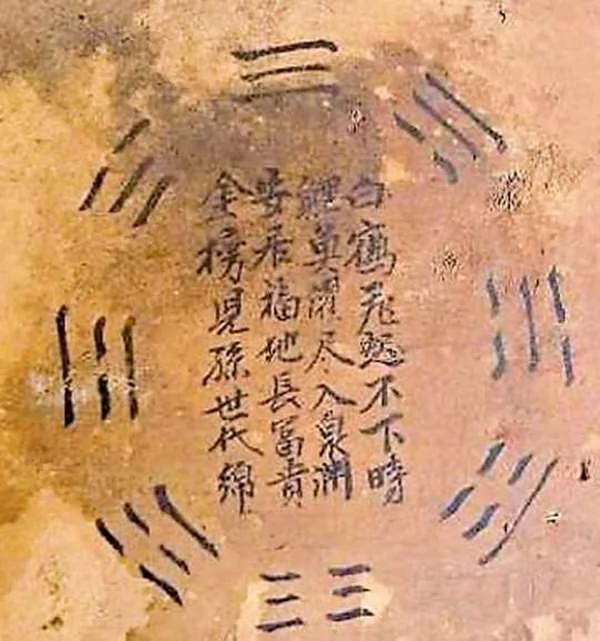 白鶴飛起不下時
鯉魚濯尽入泉渊
安居福地長冨貴
金榜児孫世代綿